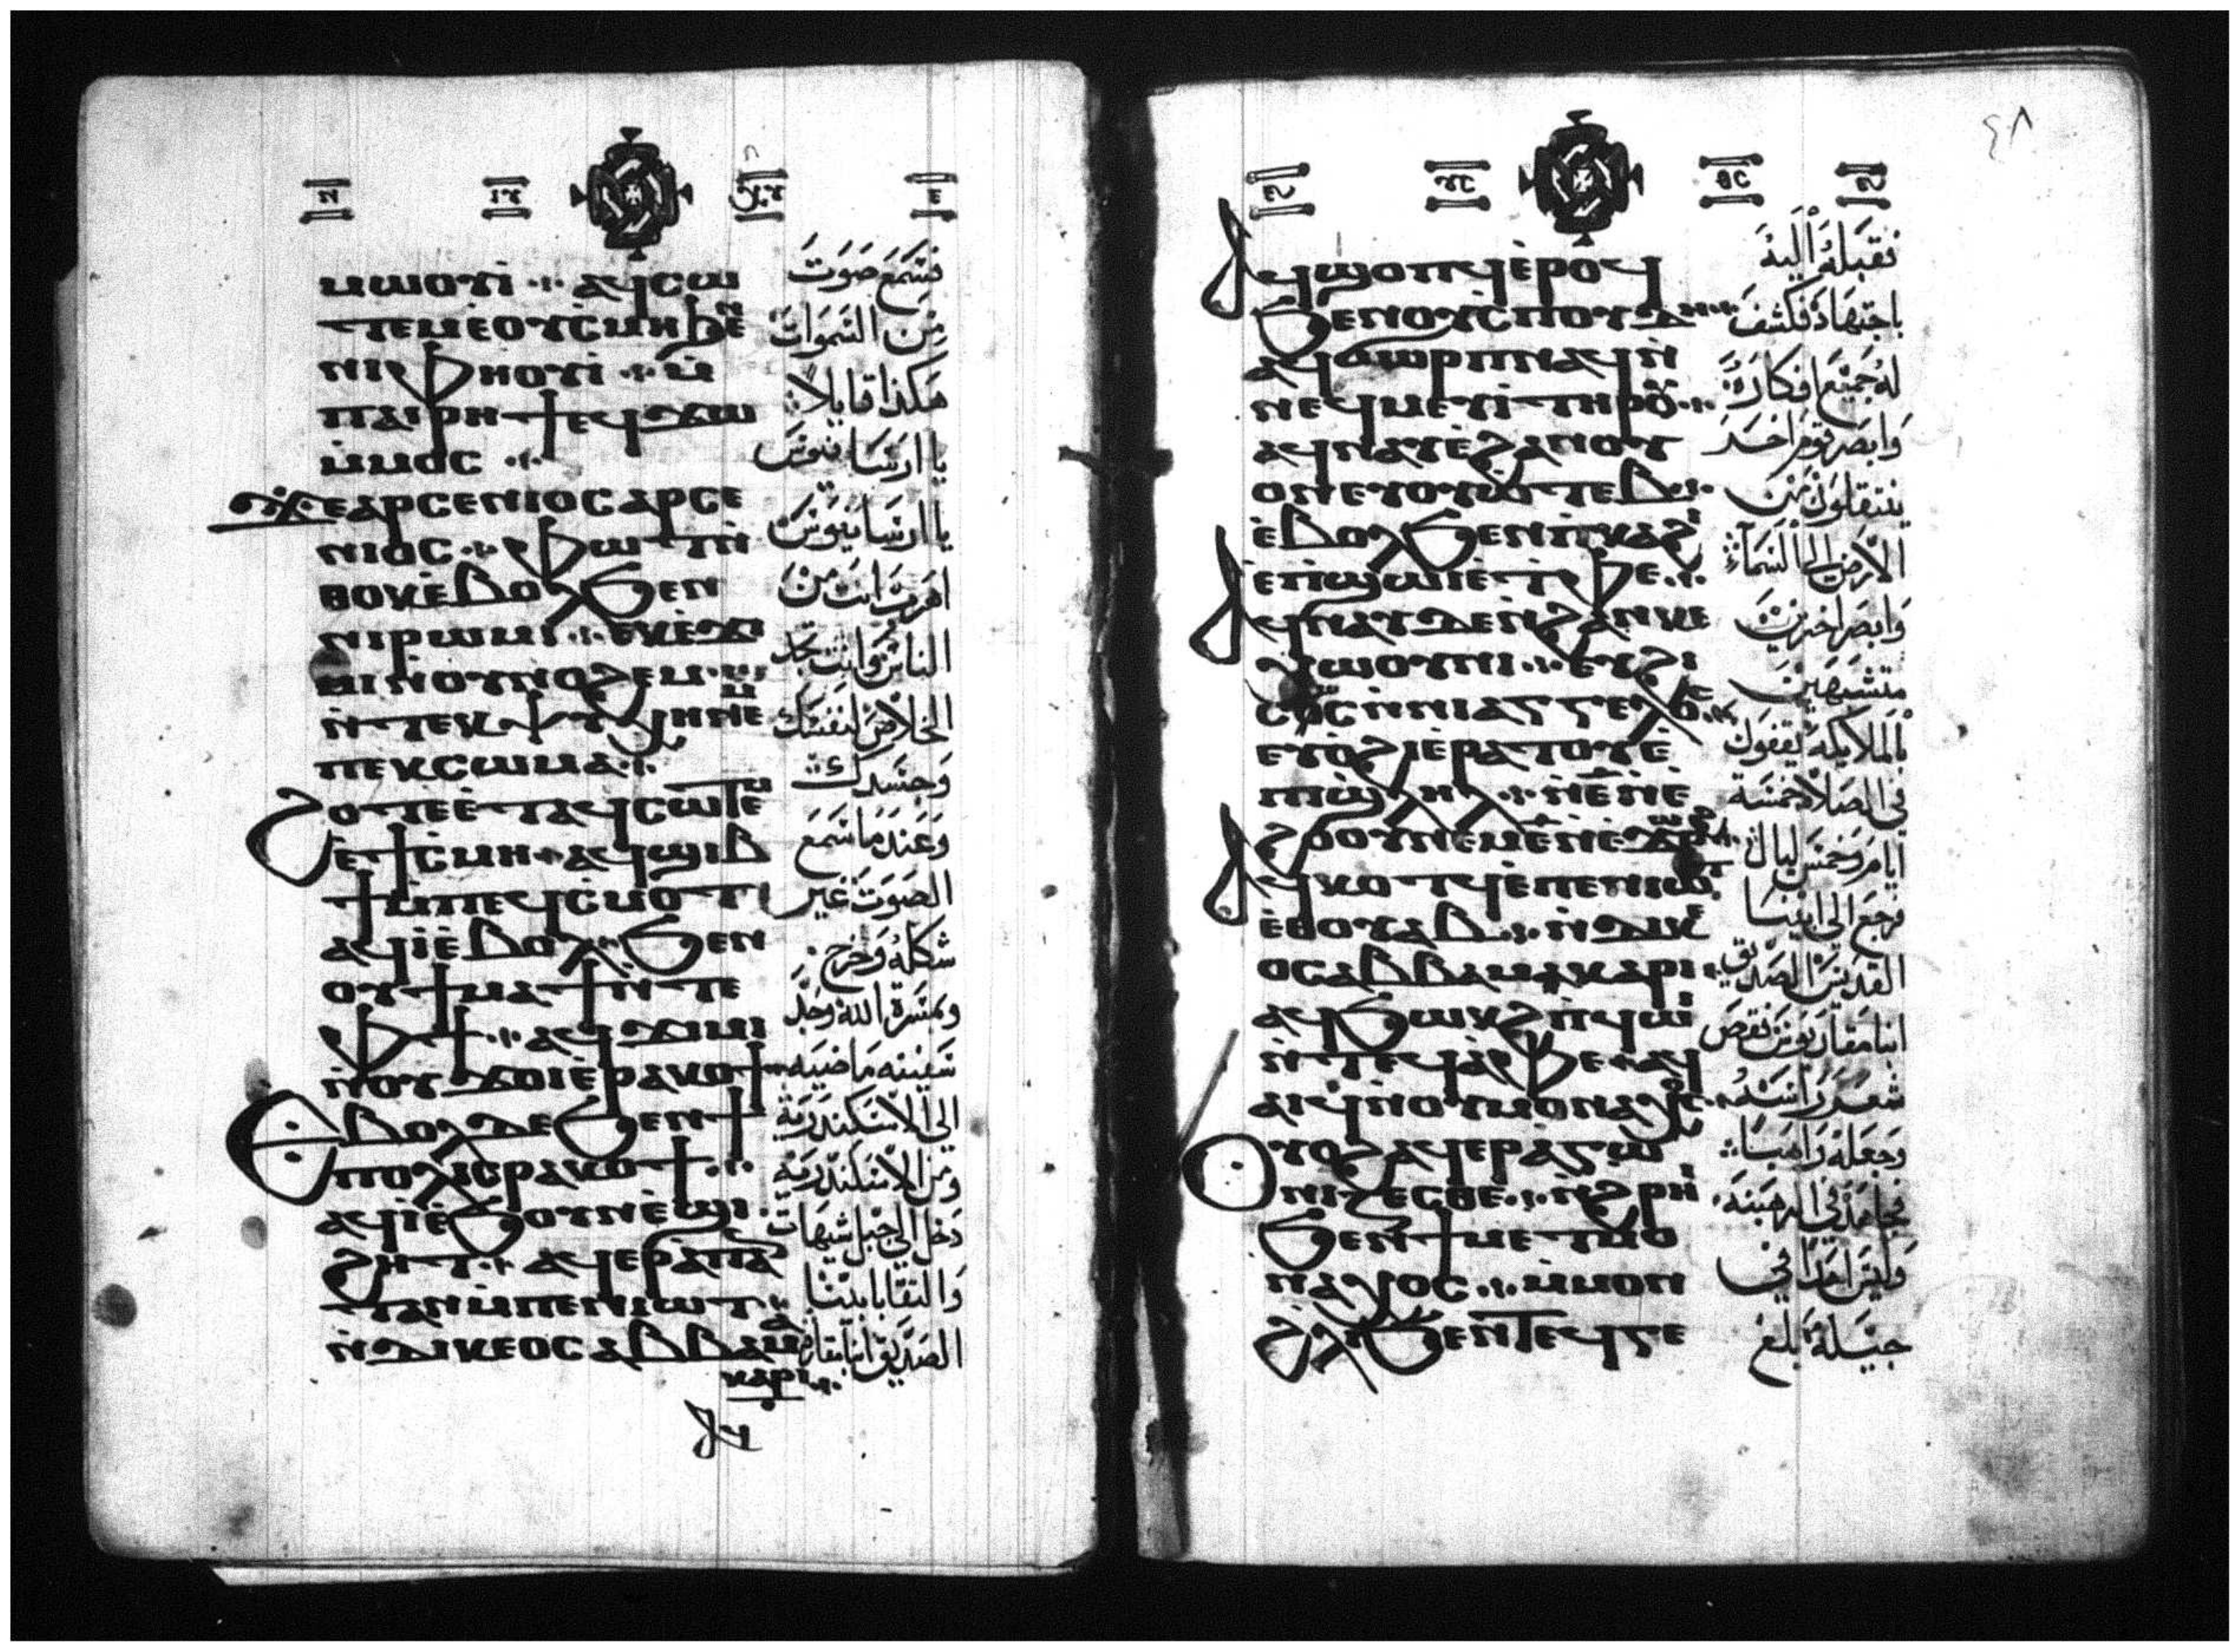 ⲙⲙⲱⲟⲩⲓ̀ ⲁϥⲥⲱ
ⲧⲉⲙⲉ̀ⲟⲩⲥ̀ⲙⲏ
ⲛⲓⲫⲏⲟⲩⲓ̀ ⲙ̀
ⲡⲁⲓⲣⲏϯⲉϥϫⲱ
ⲙ̀ⲙⲟⲥ
ϫⲉⲁⲣⲥⲉⲛⲓⲟⲥⲁⲣⲥⲉ
ⲛⲓⲟⲥ ⲫⲱⲧⲛ̀
ⲑⲟⲕⲉ̀ⲃⲟⲗϧⲉⲛ
ⲛⲓⲣⲱⲙⲓ ⲉⲕⲉ̀ϫⲓ
ⲙⲓⲛⲟⲩⲛⲟϩⲉⲙ
ⲛ̀ⲧⲉⲕⲯⲩⲭⲏⲛⲉⲙ
ⲡⲉⲕⲥⲱⲙⲁ
ϩⲟⲧⲉⲉ̀ⲧⲁϥⲥⲱⲧⲉⲙ
ⲉ̀ϯⲥ̀ⲙⲏ ⲁϥϣⲓⲃ
ϯⲙ̀ⲡⲉϥⲥ̀ⲙⲟⲧ
ⲁϥⲓ̀ⲉ̀ⲃⲟⲗϧⲉⲛ
ⲟⲩϯⲙⲁϯⲛ̀ⲧⲉ
ⲫϯ ⲁϥϫⲓⲙⲓ
ⲛ̀ⲟⲩϫⲟⲓⲉ̀ⲣⲁⲕⲟϯ
ⲉⲃⲟⲗⲇⲉϧⲉⲛϯ
ⲡⲟⲗⲓⲥⲣⲁⲕⲟϯ
ⲁϥⲓ̀ⲉ̀ϧⲟⲩⲛⲉ̀ϣⲓ
ϩⲏⲧ ⲁϥⲉⲣⲁ̀ⲡⲁ
ⲧⲁⲛⲙ̀ⲡⲉⲛⲓⲱⲧ
ⲛ̀ⲇⲓⲕⲉⲟⲥⲁⲃⲃⲁⲙⲁ
ⲕⲁⲣⲓ
ⲁϥ
فسمع صوت
من السموات
هكذا قايلاً
يا ارسانيوس
يا ارسانيوس
اهرب انت من
الناس وانت تجد
الخلاص لنفسك
وجسدك
وعند ما سمع
الصوت غير
شكله وخرج
وبمسرة الله وجد
سفينه ماضيه
الى الاسكندرية
ومن الاسكندرية
دخل الي جبل شيهات
والتقا بابينا
الصديق انبا مقار
٤٨
ⲁϥϣⲟⲡϥⲉ̀ⲣⲟϥ
ϧⲉⲛⲟⲩⲥ̀ⲡⲟⲩⲇⲏ
ⲁϥϭⲱⲣⲡⲛⲁϥⲛ̀
ⲛⲉϥⲙⲉⲩⲓ̀ⲧⲏⲣⲟⲩ
ⲁϥⲛⲁⲩⲉ̀ϩⲁⲛⲟⲩ
ⲟⲛⲉⲩⲟⲩⲱⲧⲉⲃ
ⲉ̀ⲃⲟⲗϧⲉⲛⲡⲕⲁϩⲓ
ⲉⲡϣⲱⲓⲉ̀ⲧⲫⲉ
ⲁϥⲛⲁⲩⲇⲉⲛ̀ϩⲁⲛⲕⲉ
ⲭⲱⲟⲩⲛⲓ ⲉⲩϩⲓ
ⲥⲟⲥⲛ̀ⲛⲓⲁⲅⲅⲉⲗⲟⲥ
ⲉⲩⲟ̀ϩⲓⲉ̀ⲣⲁⲧⲟⲩⲉ̀
ⲡϣⲗⲏⲗ ⲛ̀ⲉ̄ⲛ̀ⲉ̀
ϩⲟⲟⲩⲛⲉⲙⲉ̄ⲛ̀ⲉ̀ϫⲱⲣϩ
ⲁϥⲕⲟⲧϥⲉ̀ⲡⲉⲛⲓⲱⲧ
ⲉ̀ⲑⲟⲩⲁⲃ ⲛ̀ⲇⲓⲕⲉ
ⲟⲥⲁⲃⲃⲁⲙⲁⲕⲁⲣⲓ
ⲁϥϧⲱⲕϩⲙ̀ⲡϥⲱⲓ
ⲛ̀ⲧⲉϥⲁ̀ⲫⲉ ⲁϥ
ⲁⲓϥⲛ̀ⲟⲩⲙⲟⲛⲁⲭⲟⲥ
ⲟⲩⲟϩⲁϥⲉⲣⲁ̀ⲅⲱ
ⲛⲓⲍⲉⲥⲑⲉ ⲛ̀ϩⲣⲏⲓ
ϧⲉⲛϯⲙⲉⲧⲙⲟ
ⲛⲁⲭⲟⲥ ⲙ̀ⲙⲟⲛ
ϩⲗⲓϧⲉⲛⲧⲉϥⲅⲉ
فقبله اليه
باجتهاد فكشف
له جميع افكاره
وابصر قوم احد
ينتقلون من
الارض الى السماء
وابصر اخرين
متشبهين
بالملايكه يقفون
في الصلاه خمسة
ايام وخمس ليال
فرجع الى ابينا
القديس الصديق
انبا مقاريوس فقص
شعر راسه
وجعله راهباً
فجاهد في الرهبنه
وليس احداً في
جيله بلغ